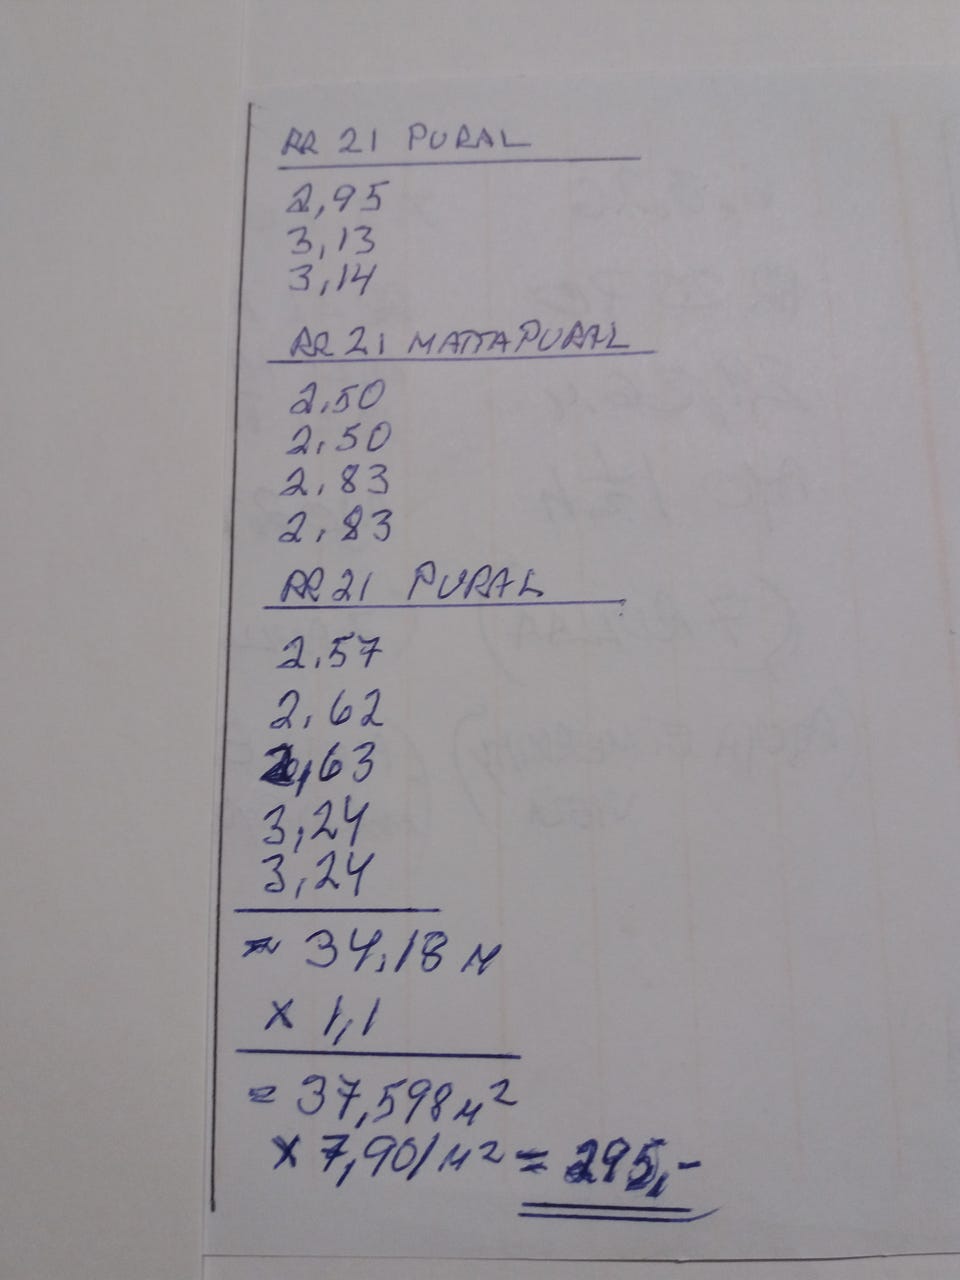 RR 21 PURAL
2,95
3,13
3,14
RR 21 MATTAPURAL
2,50
2,50
2,83
2,83
RR 21 PURAL
2,57
2,62
2,63
3,24
3,24
= 34,18 M
x 1,1
= 37,598 M²
x 7,90/M² = 295,-